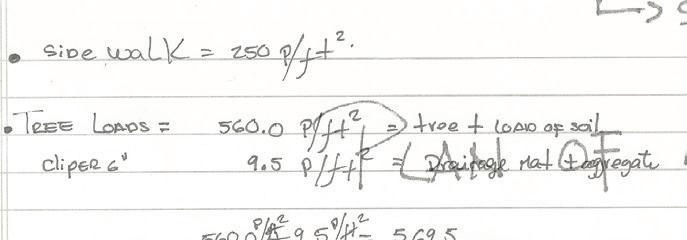 • SIDE WALK = 250 P/ft².
• TREE LOADS = 560.0 P/ft² = tree + LOAD OF SOIL
CLIPER 6" 9.5 P/ft² = Drainage Mat + agregate
560.0 P/ft² 9.5 P/ft² = 569.5